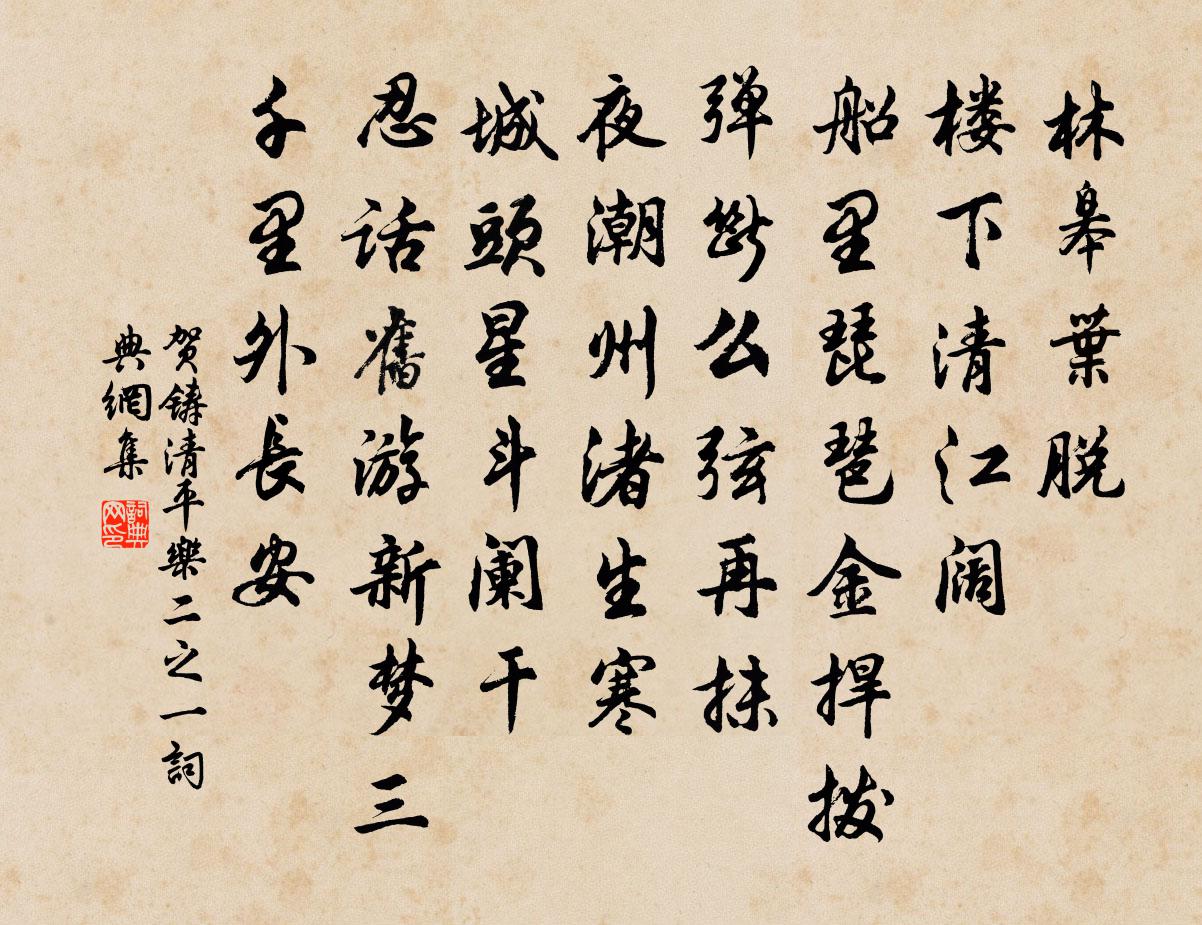 林皋葉脱
楼下清江阔
船里琵琶金捍拨
弹断么弦再抹
夜潮州渚生寒
城頭星斗阑干
忍话舊游新梦三
千里外長安
贺鋳清平樂二之一詞
典網集
詞典
网印